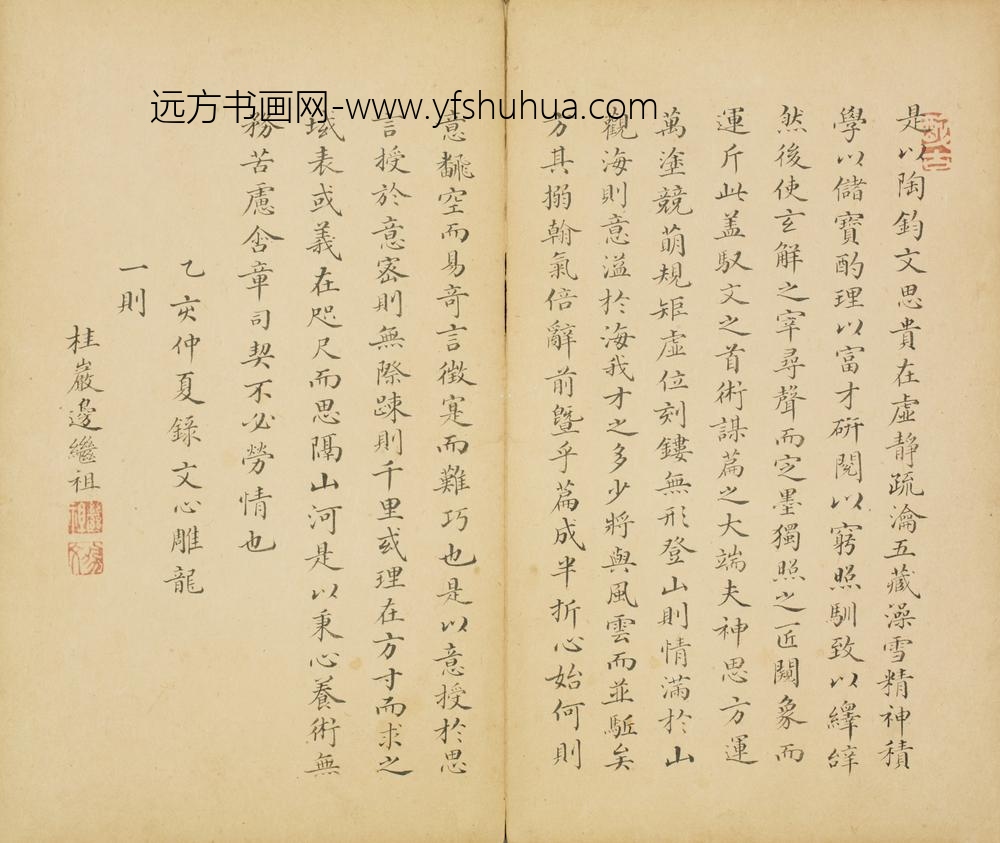 远方书画网-www.yfshuhua.com
是以陶鈞文思貴在虛靜疏瀹五藏澡雪精神積
學以儲寶酌理以富才研閱以窮照馴致以繹辝
然後使玄解之宰尋聲而定墨獨照之匠闚象而
運斤此盖馭文之首術謀篇之大端夫神思方運
萬塗競萌規矩虛位刻鏤無形登山則情滿於山
觀海則意溢於海我才之多少將與風雲而並駈矣
方其搦翰氣倍辭前暨乎篇成半折心始何則
意飜空而易奇言徵寔而難巧也是以意授於思
言授於意密則無際踈則千里或理在方寸而求之
域表或義在咫尺而思隔山河是以秉心養術無
務苦慮含章司契不必勞情也
乙亥仲夏錄文心雕龍
一則
桂巖邊繼祖